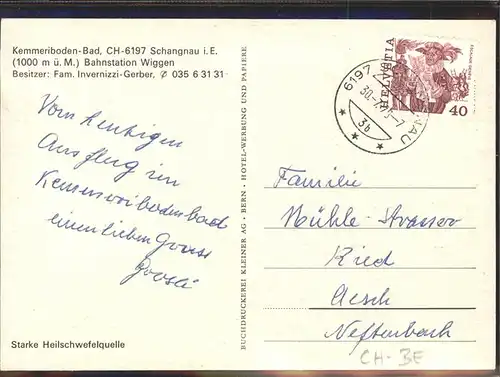 Kemmeriboden-Bad, CH-6197 Schangnau i. E.
(1000 m ü. M.) Bahnstation Wiggen
Besitzer: Fam. Invernizzi-Gerber, ✆ 035 6 31 31
Vom heutigen
Ausflug im
Kemmeribodenbad
einen lieben Gruss
Starke Heilschwefelquelle
BUCHDRUCKEREI KLEINER AG - BERN - HOTEL-WERBUNG UND PAPIERE
HELVETIA
40
6197
3b
Familie
Mühle-Strasser
Ried
Aesch
Neftenbach
CH-BE